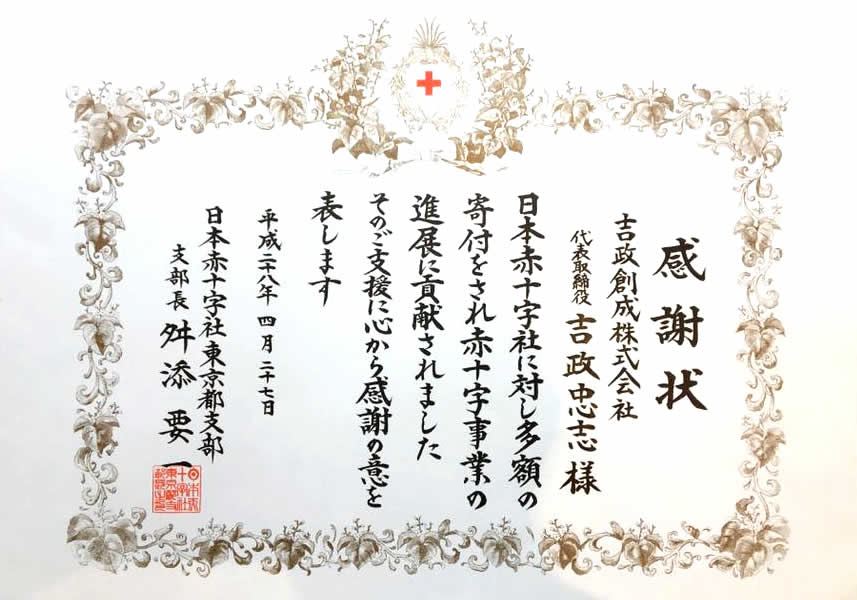 感謝状
吉政創成株式会社
代表取締役 吉政忠志様
日本赤十字社に対し多額の
寄付をされ赤十字事業の
進展に貢献されました
そのご支援に心から感謝の意を
表します
平成二十八年 四月 二十七日
日本赤十字社東京都支部
支部長 舛添要一